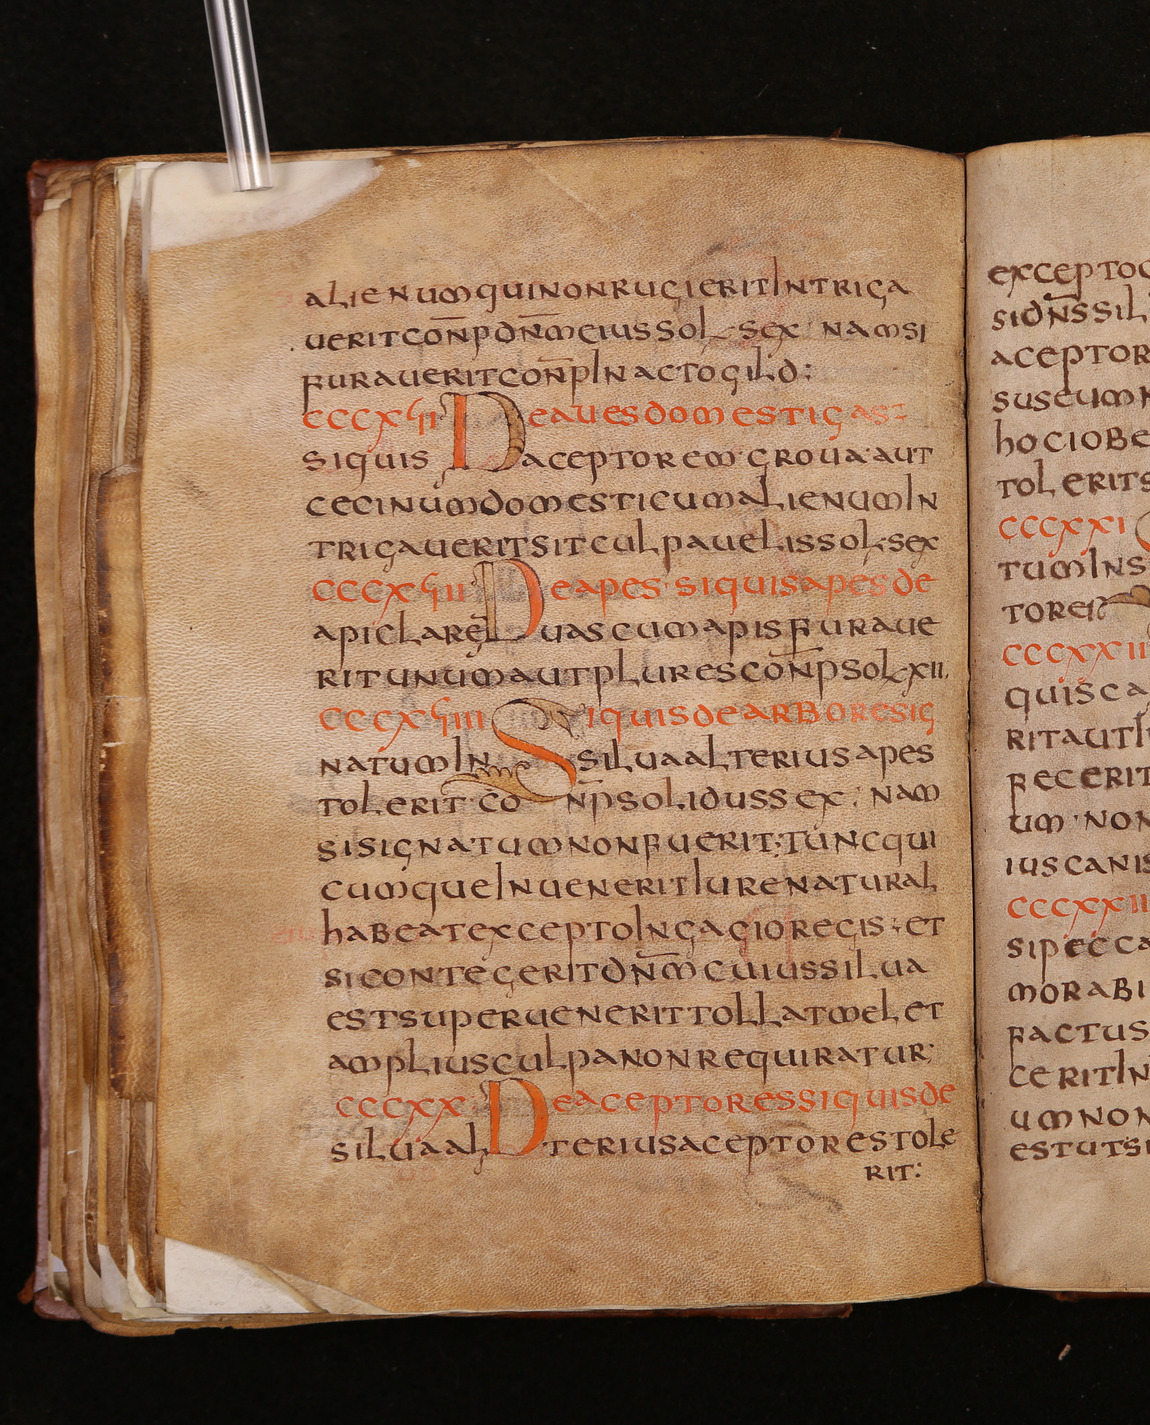 alienumquinonrugieritintriga
ueritcon̄pdn̄meiussol·sex· namsi
furaueritcon̄pinactogild:
cccxᔦii Deauesdomesticas:
siquis aceptorem·groua·aut
cecinumdomesticumalienumin
trigaueritsitculpauelissol·sex
cccxᔦiii Deapes·siquisapesde
apiclare Duascumapisfuraue
ritunumautplurescon̄psol·xii.
cccxᔦiiii Siquisdearboresig
natumin silualteriusapes
tolerit·co n̄psolidussex: nam
sisignatumnonfuerit;tuncqui
cumqueinueneritiurenatural
habeatexceptoingagioregis·et
sicontegeritdn̄mcuiussilua
estsuperuenerittollatmel,et
ampliusculpanonrequiratur;
cccxx· Deaceptoressiquisde
siluaal teriusaceptorestole
rit:
exceptog
sidn̄ssil
aceptor
suseum
hociobe
tolerits
cccxxi
tumins
torei
cccxxii
quisca
ritauti
fecerit
um·non
iuscanis
cccxxii
sipecca
morabi
factus
ceritin
umnon
estutsi